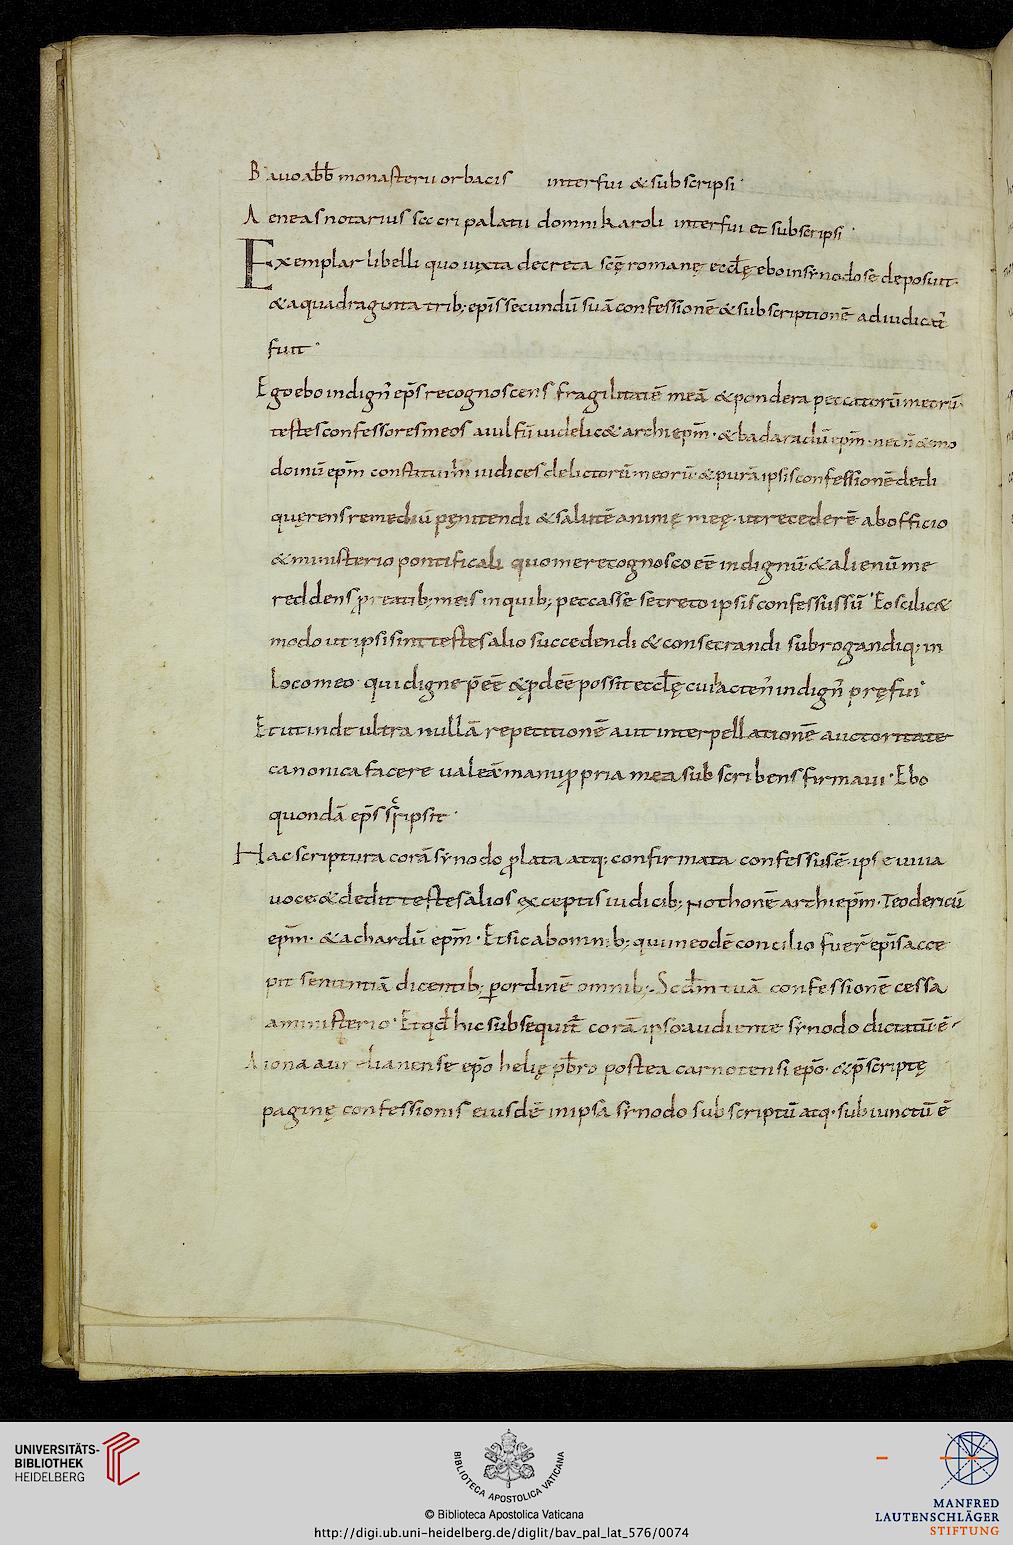 Bauo abb̄ monasterii orbacis interfui & subscripsi
Aeneas notarius sc̄i eri palatii domni karoli interfui et subscripsi
Exemplar libelli quo iuxta decreta sc̄ę romanę eccl̄ę ebo in synodo se deposuit.
& a quadraginta trib; ep̄is secundū suā confessionē & subscriptionē adiudicat᷒
fuit
Ego ebo indign᷒ ep̄s recognoscens fragilitatē meā & pondera peccatorū meorū.
testes confessores meos aiulfū uidelic& archiep̄m. & badaradū ep̄m. necn̄ & mo
doinū ep̄m constitui iudices delictorū meorū. & purā ipsis confessionē dedi
quęrens remediū pęnitendi & salutē animę meę. ut recederē ab officio
& ministerio pontificali quo me recognosco eē indignū. & alienū me
reddens p reatib; meis in quib; peccasse secreto ipsis confessus sū Eo scilic&
modo ut ipsi sint testes alio succedendi & consecrandi subrogandiq; in
loco meo qui digne p̄eē & pdeē possit eccl̄ę cui hacten᷒ indign᷒ pręfui
Et ut inde ultra nullā repetitionē aut interpellationē auctoritate
canonica facere ualeā manu ppria mea subscribens firmaui. Ebo
quondā ep̄s sr̄ipsit
Hac scriptura corā synodo plata atq; confirmata confessus ē. ipse uiua
uoce & dedit testes alios exceptis iudicib; Nothonē archiep̄m. Teodericū
ep̄m. & achardū ep̄m. Et sic ab omnib; qui in eodē concilio fuer̄ ep̄is acce
pit sententiā dicentib; p ordinē omnib; Scd̄m tuā confessionē cessa
a ministerio. Et qd̄ hic subsequit᷒ corā ipso audiente synodo dictatū ē
A iona aurelianense ep̄o helię pb̄ro postea carnotensi ep̄o. & p̄scriptę
paginę confessionis eiusdē in ipsa synodo subscriptū atq. subiunctū ē
UNIVERSITÄTS-
BIBLIOTHEK
HEIDELBERG
BIBLIOTECA APOSTOLICA VATICANA
© Biblioteca Apostolica Vaticana
http://digi.ub.uni-heidelberg.de/diglit/bav_pal_lat_576/0074
MANFRED
LAUTENSCHLÄGER
STIFTUNG